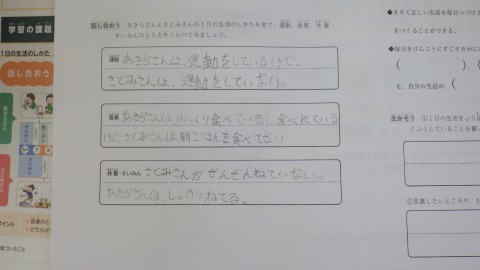 学習の課題
1日の生活のしかた
話し合おう
話し合おう あきらさんとさとみさんの1日の生活のしかたを見て、運動、食事、休養・
すいみんのとり方をくらべてみましょう。
運動 あきらさんは、運動をしているけど、
さとみさんは、運動をしていない。
食事 あきらさんはゆっくり食べているし、食べれている
けど、さとみさんは朝ごはんを食べてない
休養・すいみん さとみさんがぜんぜんねていない。
あきらさんは、しっかりねてる。
◆きそく正しい生活を毎日つづける
をつくることができる。
◆毎日をけんこうにすごすために
( )、(
を、自分の生活の(
生かそう ①1日の生活をふり
くふうしていることを書い
②見直したいところや、も